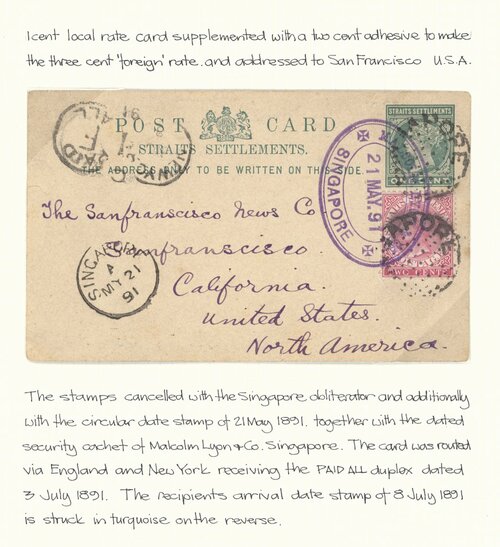 1cent local rate card supplemented with a two cent adhesive to make
the three cent 'foreign' rate. and addressed to San Francisco U.S.A.
POST CARD
STRAITS SETTLEMENTS.
THE ADDRESS ONLY TO BE WRITTEN ON THIS SIDE.
PAID
ALL
STRAITS SETTLEMENTS
ONE CENT
SINGAPORE
21 MAY 91
TWO CENTS
The Sanfrancisco News Co
Sanfrancisco.
California.
United States.
North America.
SINGAPORE
A
MY 21
91
The stamps cancelled with the Singapore obliterator and additionally
with the circular date stamp of 21 May 1891. together with the dated
security cachet of Malcolm Lyon & Co. Singapore. The card was routed
via England and New York receiving the PAID ALL duplex dated
3 July 1891. The recipients arrival date stamp of 8 July 1891
is struck in turquoise on the reverse.